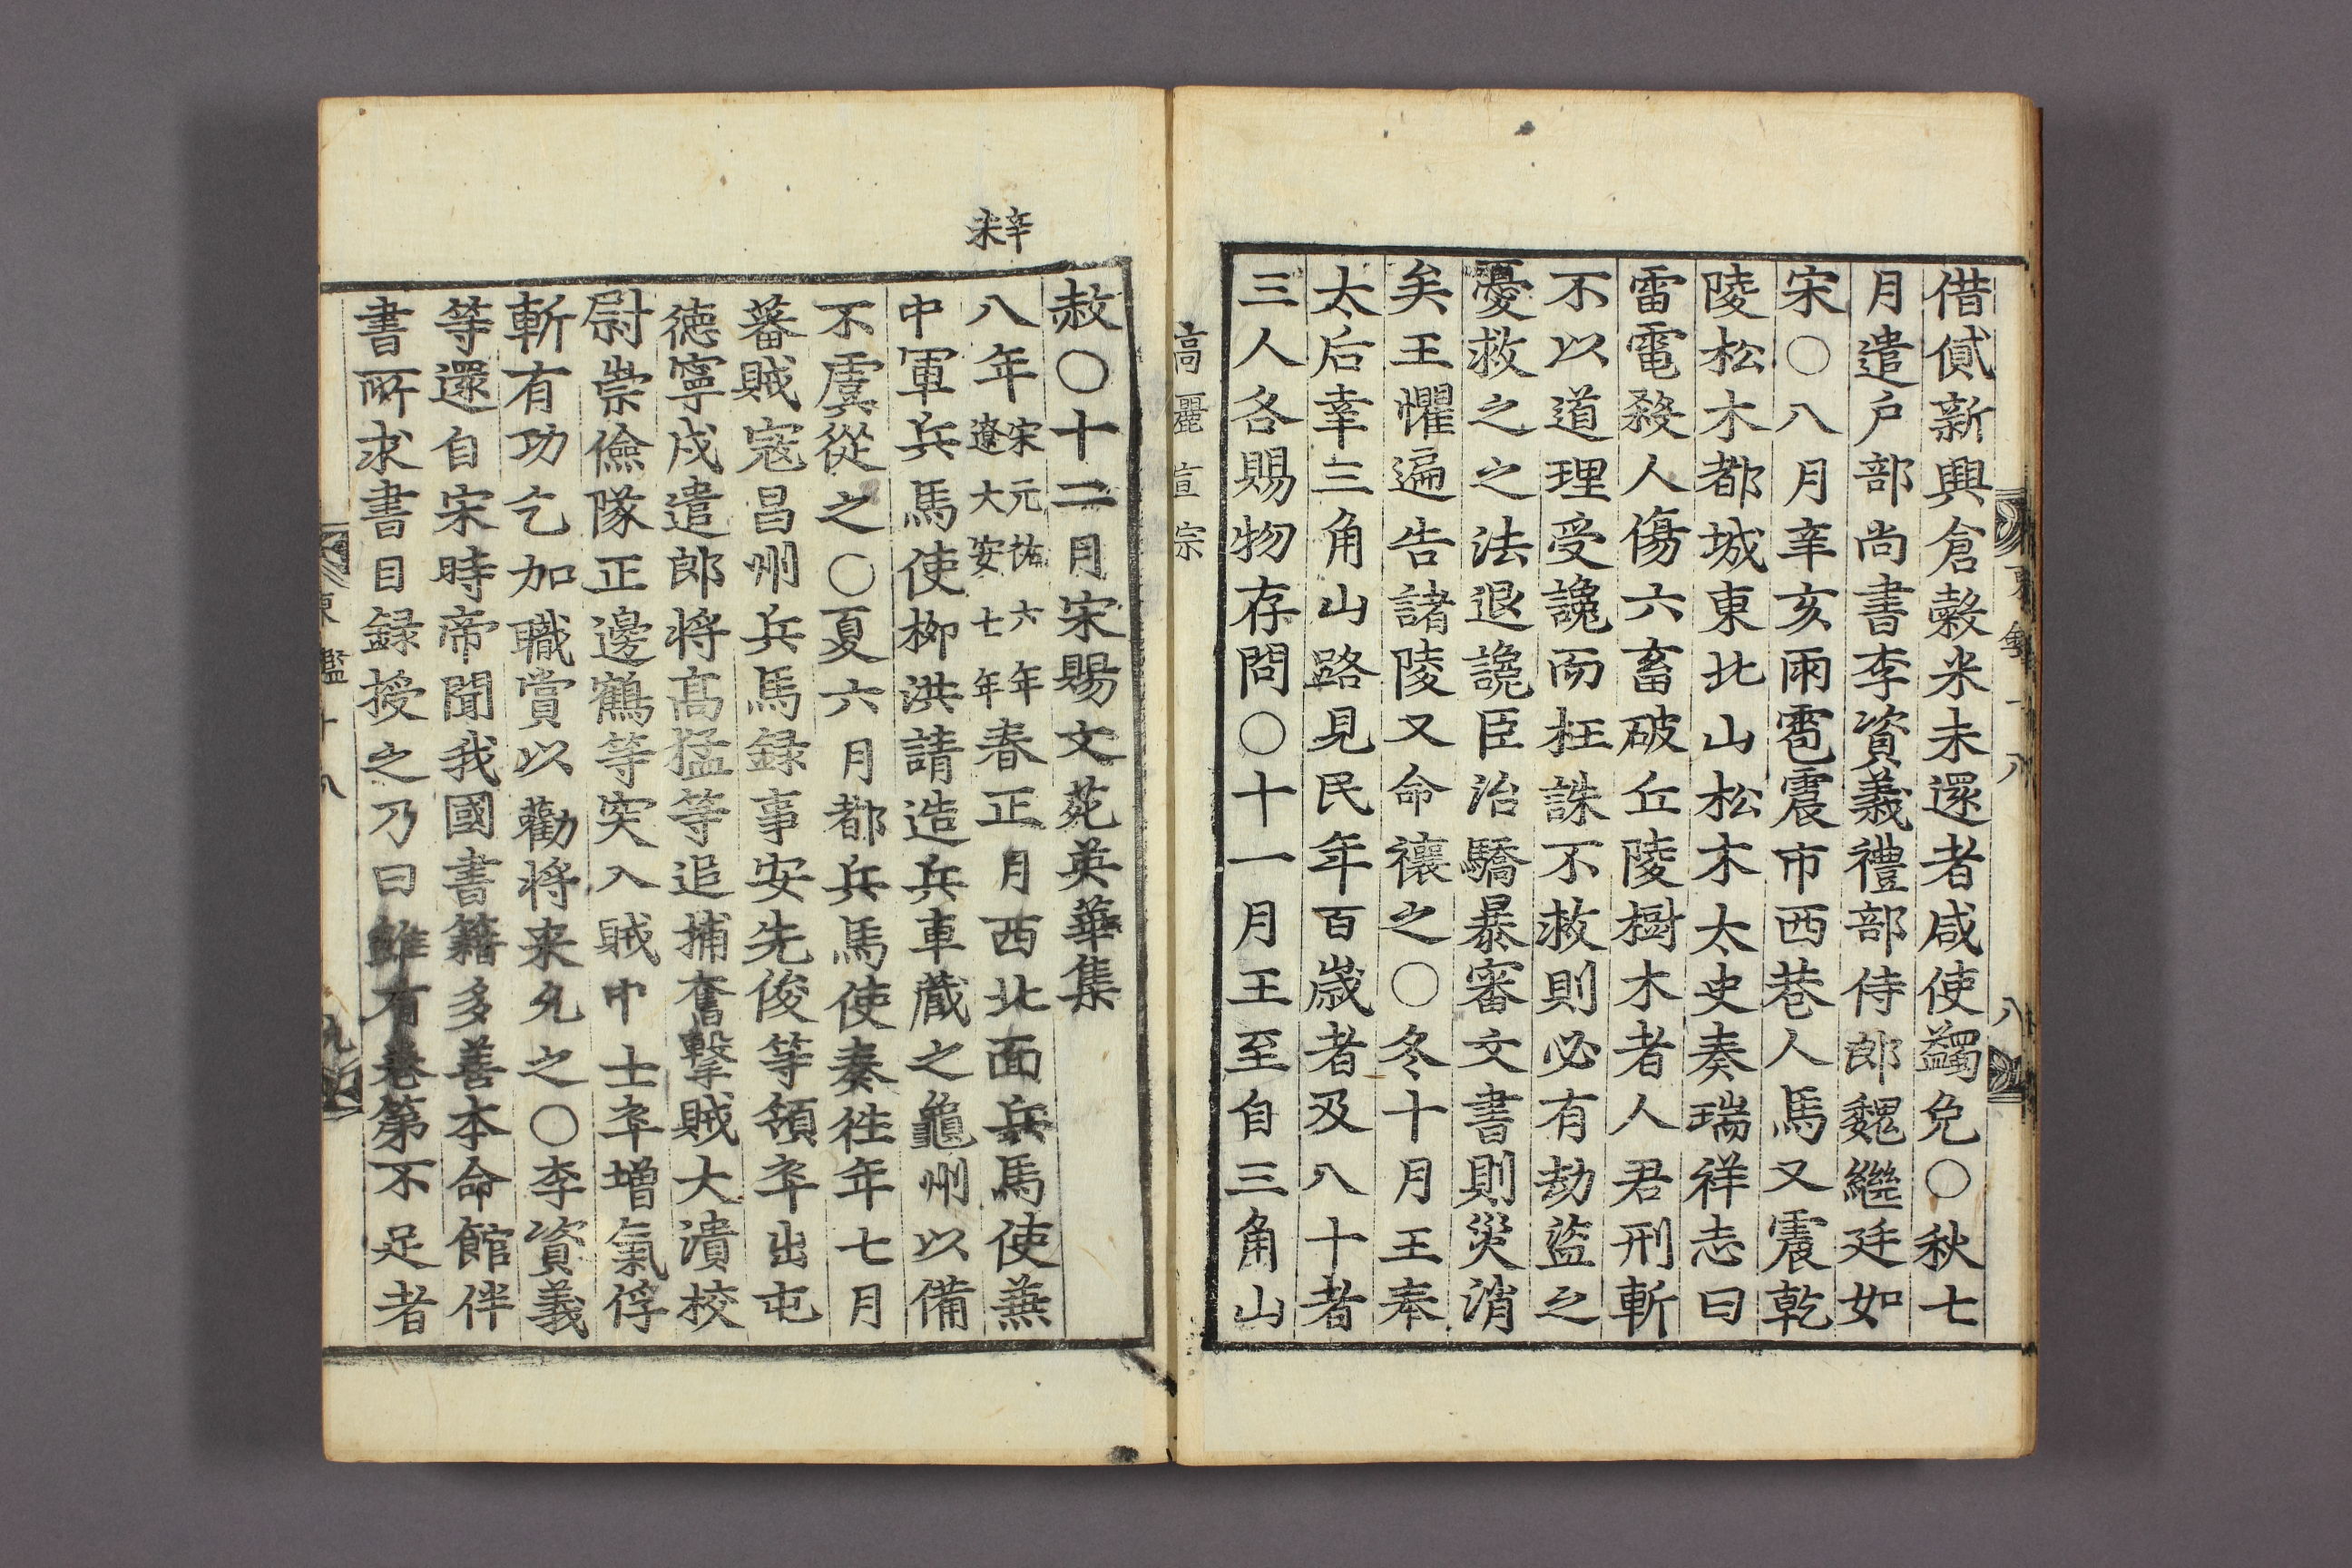 借貸新興倉穀米未還者咸使蠲免○秋七
月遣户部尚書李資義禮部侍郎魏繼廷如
宋○八月辛亥雨雹震市西巷人馬又震乾
陵松木都城東北山松木太史奏瑞祥志曰
雷電殺人傷六畜破丘陵樹木者人君刑斬
不以道理受讒而枉誅不救則必有劫盜之
憂救之之法退讒臣治驕暴審文書則災消
矣王懼遍告諸陵又命禳之○冬十月王奉
太后幸三角山路見民年百歲者及八十者
三人各賜物存問○十一月王至自三角山
高麗宣宗
赦○十二月宋賜文苑英華集
辛未
八年宋元祐六年遼大安七年春正月西北面兵馬使兼
中軍兵馬使柳洪請造兵車蔵之龜州以備
不虞從之○夏六月都兵馬使奏徃年七月
蕃賊寇昌州兵馬録事安先俊等領卒出屯
德寧戍遣郎将髙猛等追捕奮擊賊大潰校
尉崇儉隊正邊鶴等突入賊中士卒增氣俘
斬有功乞加職賞以勸将来允之○李資義
等還自宋時帝聞我國書籍多善本命館伴
書所求書目録授之乃曰雖有卷第不足者
東鑑十八